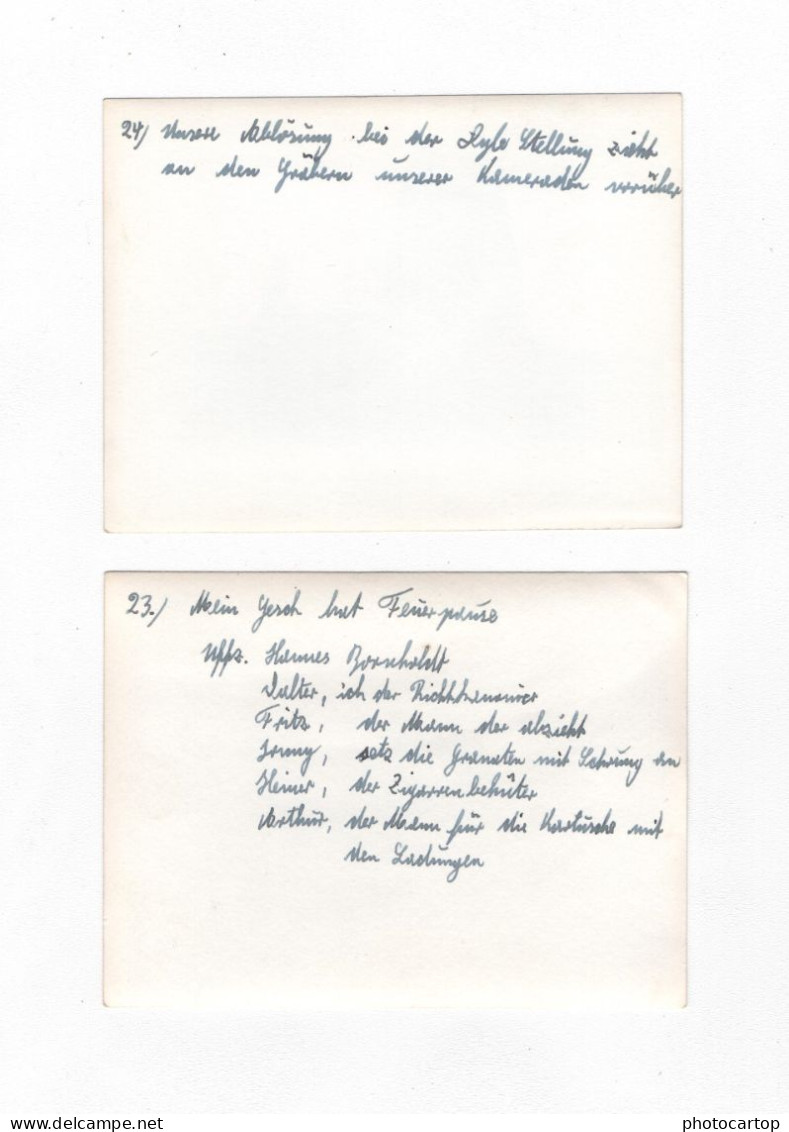 24) Unsere Ablösung bei der Stellung zieht
an den Gräbern unserer Kameraden vorüber
23.) Mein Gesch hat Feuerpause
Uffz. Hannes Borscholdt
Walter, ich der Richtkanonier
Fritz, der Mann der abzieht
setz die Granaten mit Schwung an
Heiner, der Zigarrenbehüter
Arthur, der Mann für die Kartusche mit
den Ladungen
www.delcampe.net
photocartop